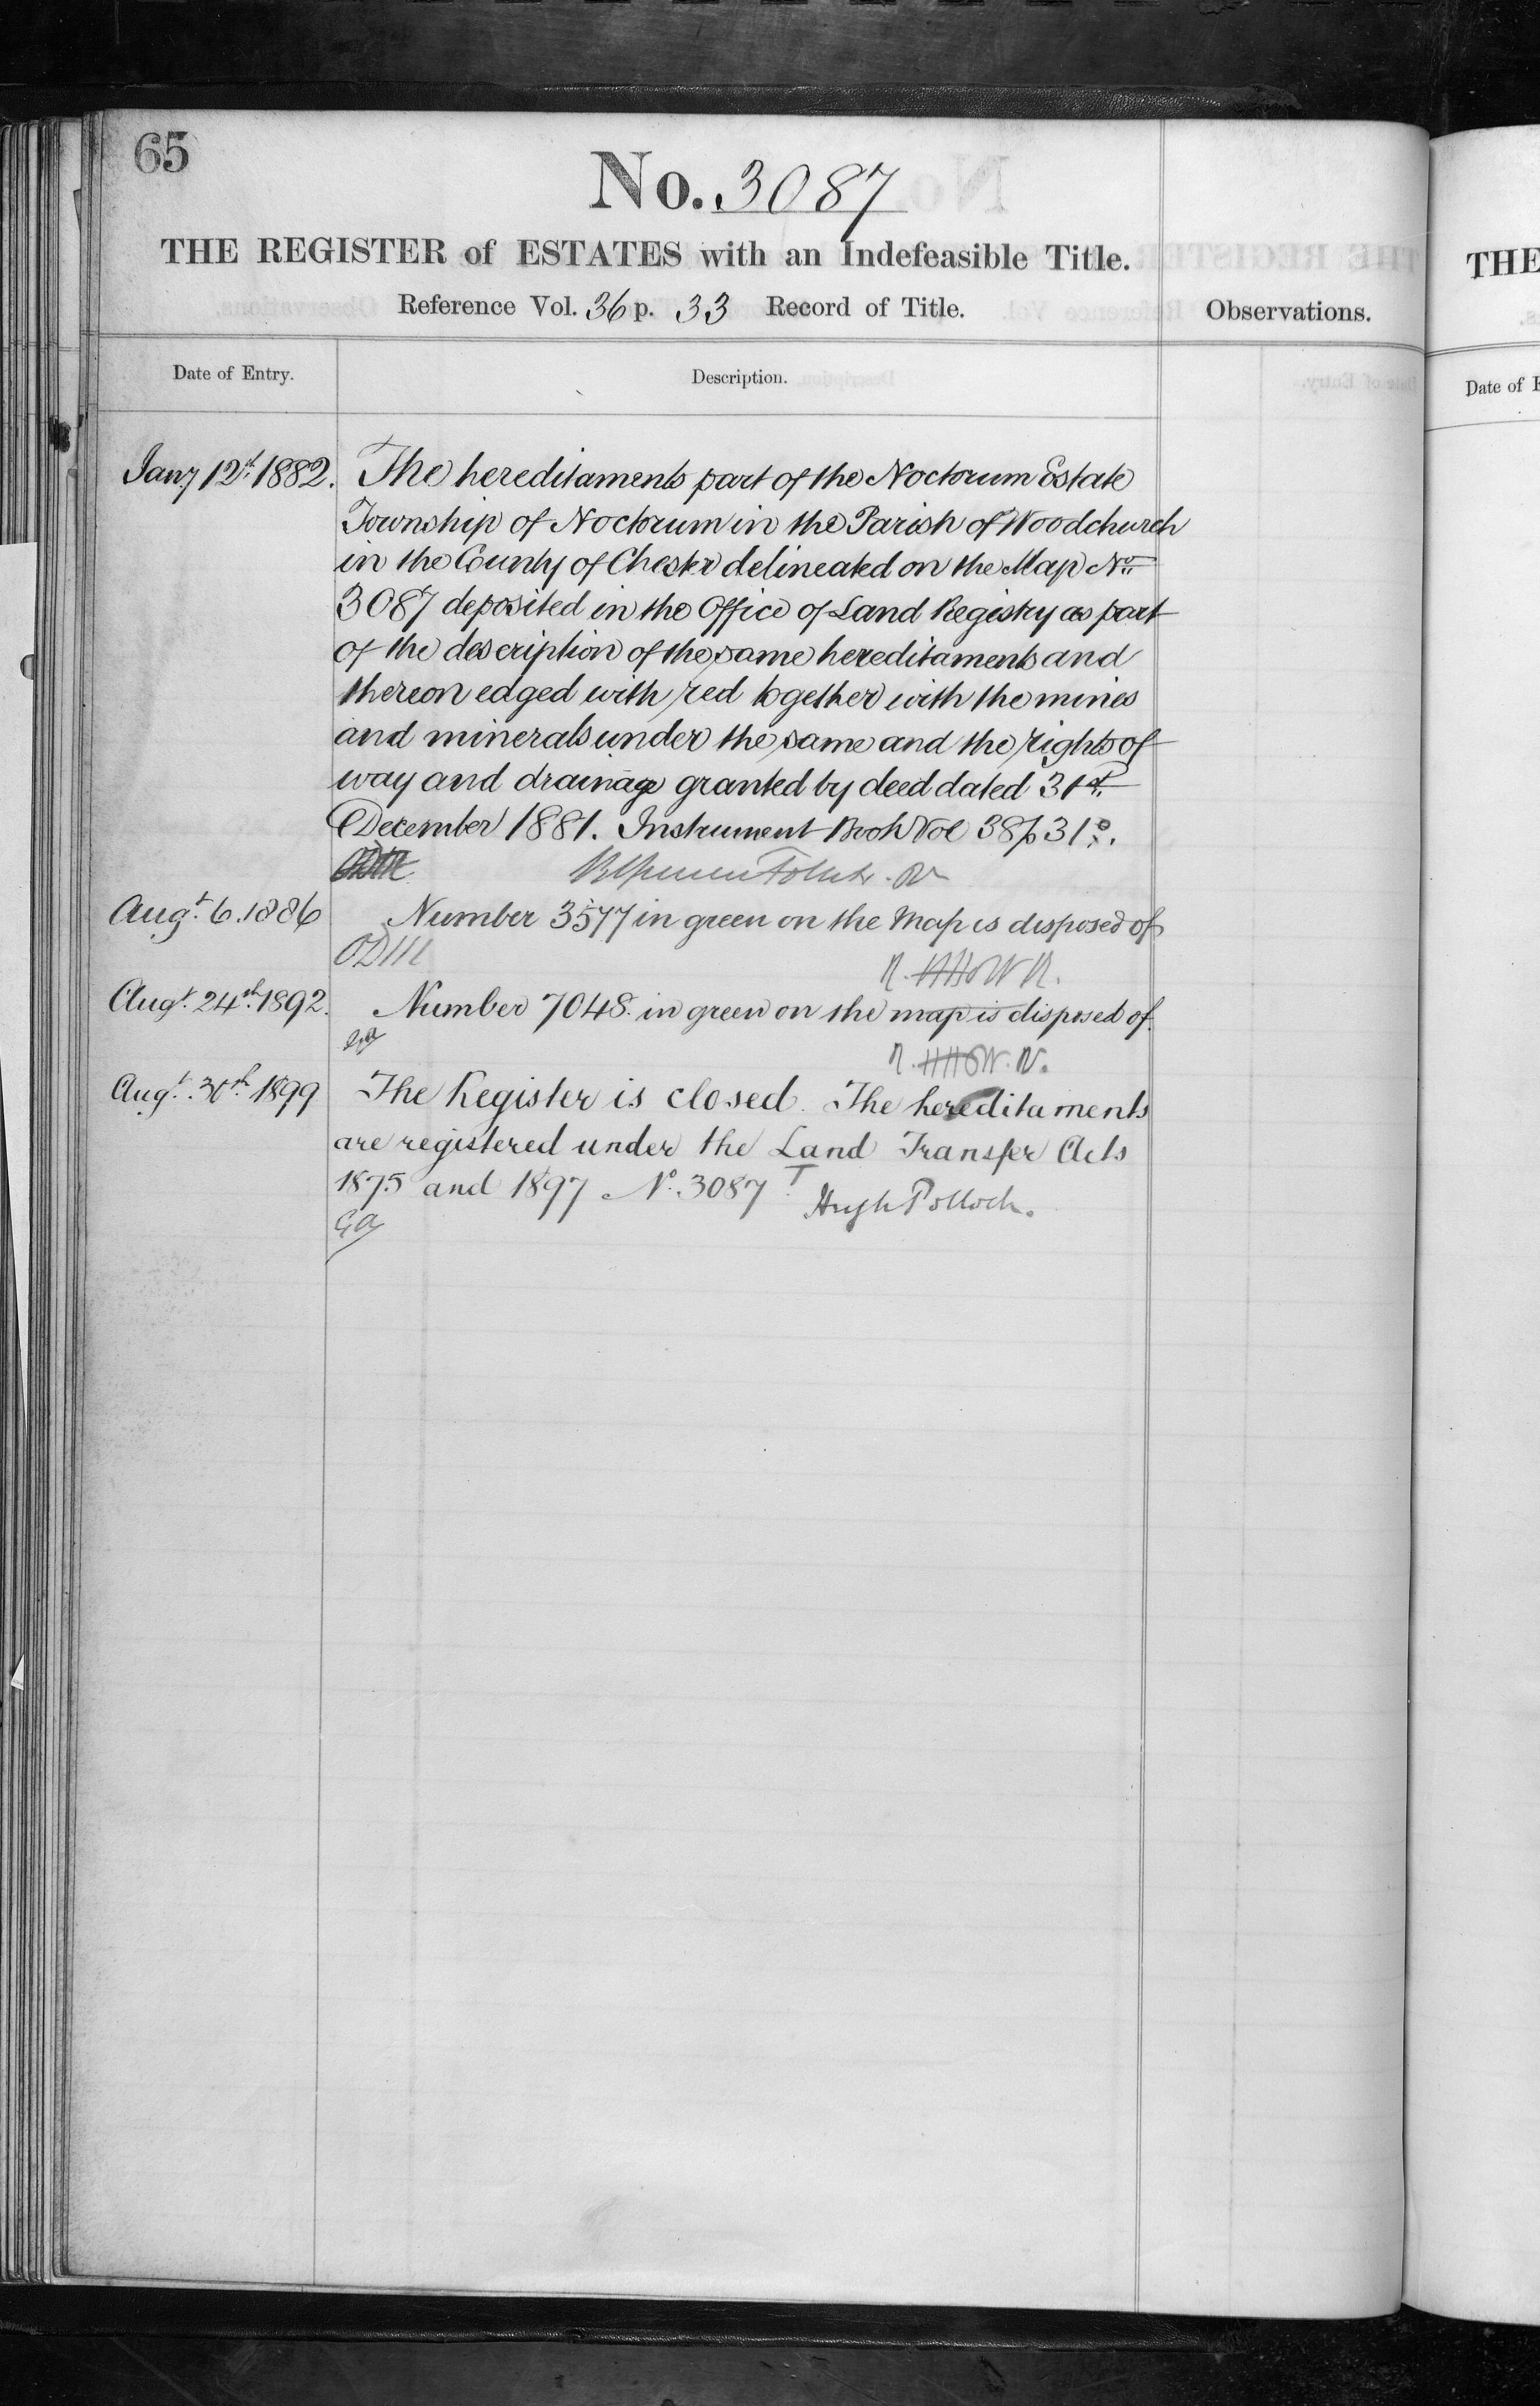 65
No. 3087
THE REGISTER of ESTATES with an Indefeasible Title.
Reference Vol. 36 p. 33 Record of Title.
Observations.
Date of Entry.
Description.
Jany 12th 1882. The hereditaments part of the Noctorum Estate
Township of Noctorum in the Parish of Woodchurch
in the County of Chester delineated on the Map No.
3087 deposited in the Office of Land Registry as part
of the description of the same hereditaments and
thereon edged with red together with the mines
and minerals under the same and the rights of
way and drainage granted by deed dated 31st
December 1881. Instrument Book Vol 38 p 31
Augt. 6. 1886 Number 3577 in green on the Map is disposed of
Augt. 24th. 1892. Number 7048 in green on the map is disposed of.
Augt. 30th 1899 The Register is closed. The hereditaments
are registered under the Land Transfer Acts
1875 and 1897 No. 3087 T
Hugh Pollock.
THE
Date of E